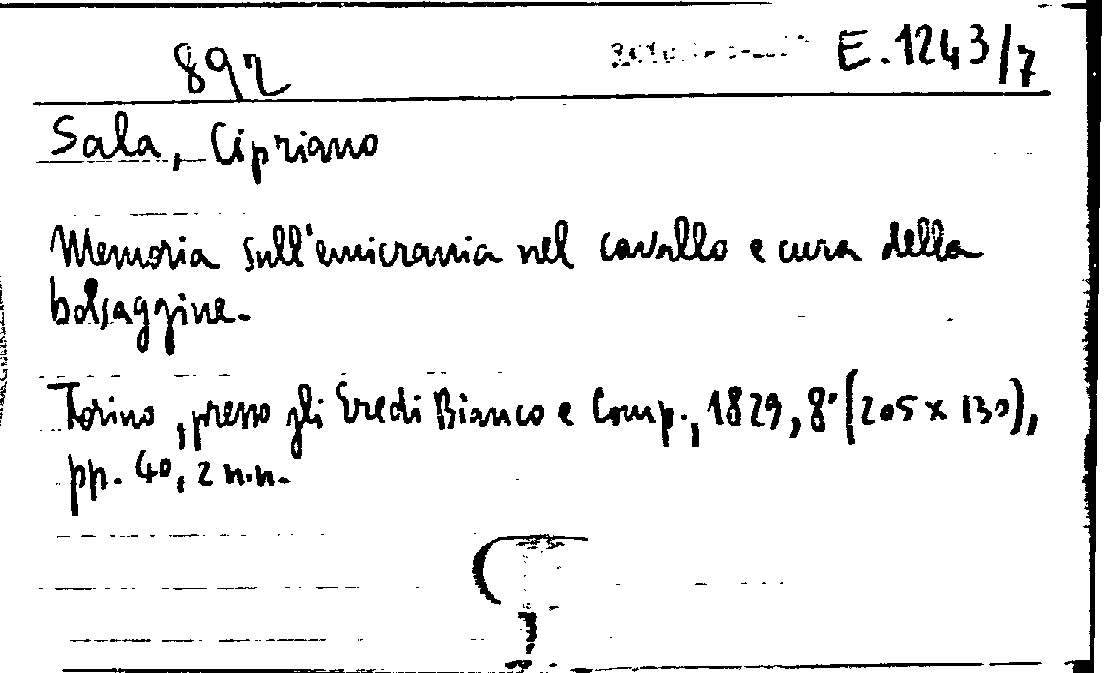 892 E.1243/7
Sala, Cipriano
Memoria sull'emicrania nel cavallo e cura della
bolsaggine.
Torino, presso gli Eredi Bianco e Comp., 1829, 8° (205 x 130),
pp. 40, 2 n.n.